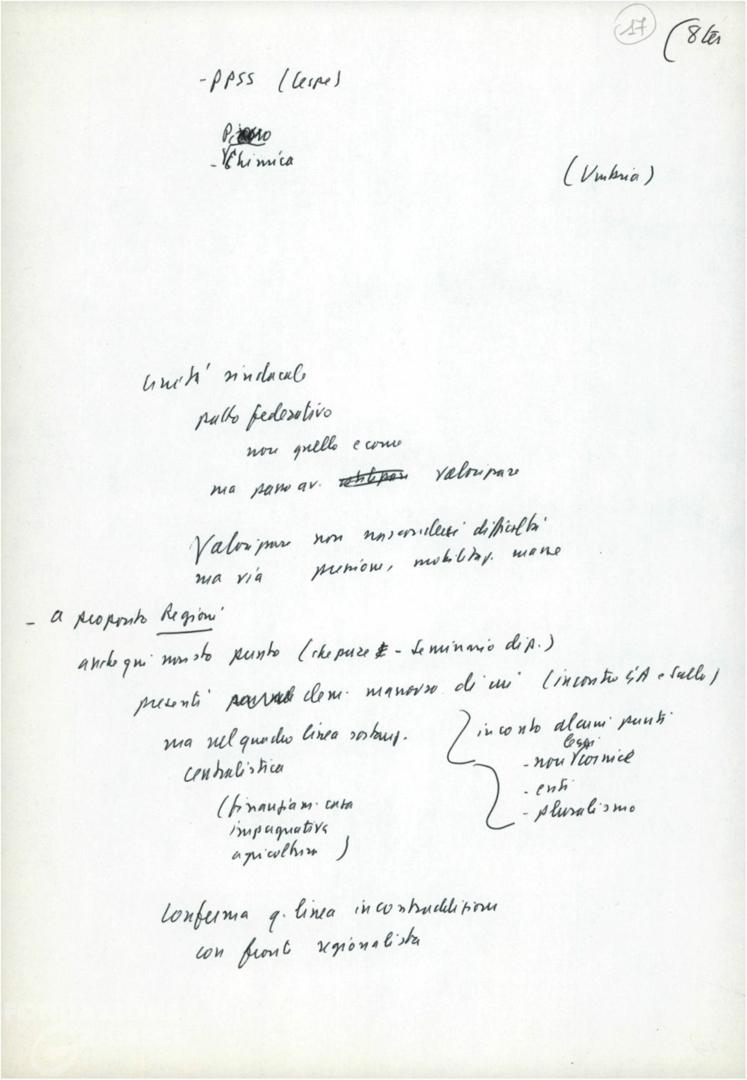 17 (8 ter
- PPSS (Cespe)
Piano
- Chimica
(Umbria)
Unità sindacale
patto federativo
non quello e come
ma passo av. valorizzare
Valorizzare non nascondersi difficoltà
ma via pressione, mobilitaz. masse
- a proposito Regioni
anche qui questo punto (che pure - seminario dip.)
presenti elem. manovra di cui (incontro e Sullo)
ma nel quadro linea sostanz.
centralistica
(finanziam. casa
impugnativa
agricoltura)
incontro alcuni punti
leggi
- non cornice
- enti
- pluralismo
Conferma q. linea in contraddizione
con fronte regionalista